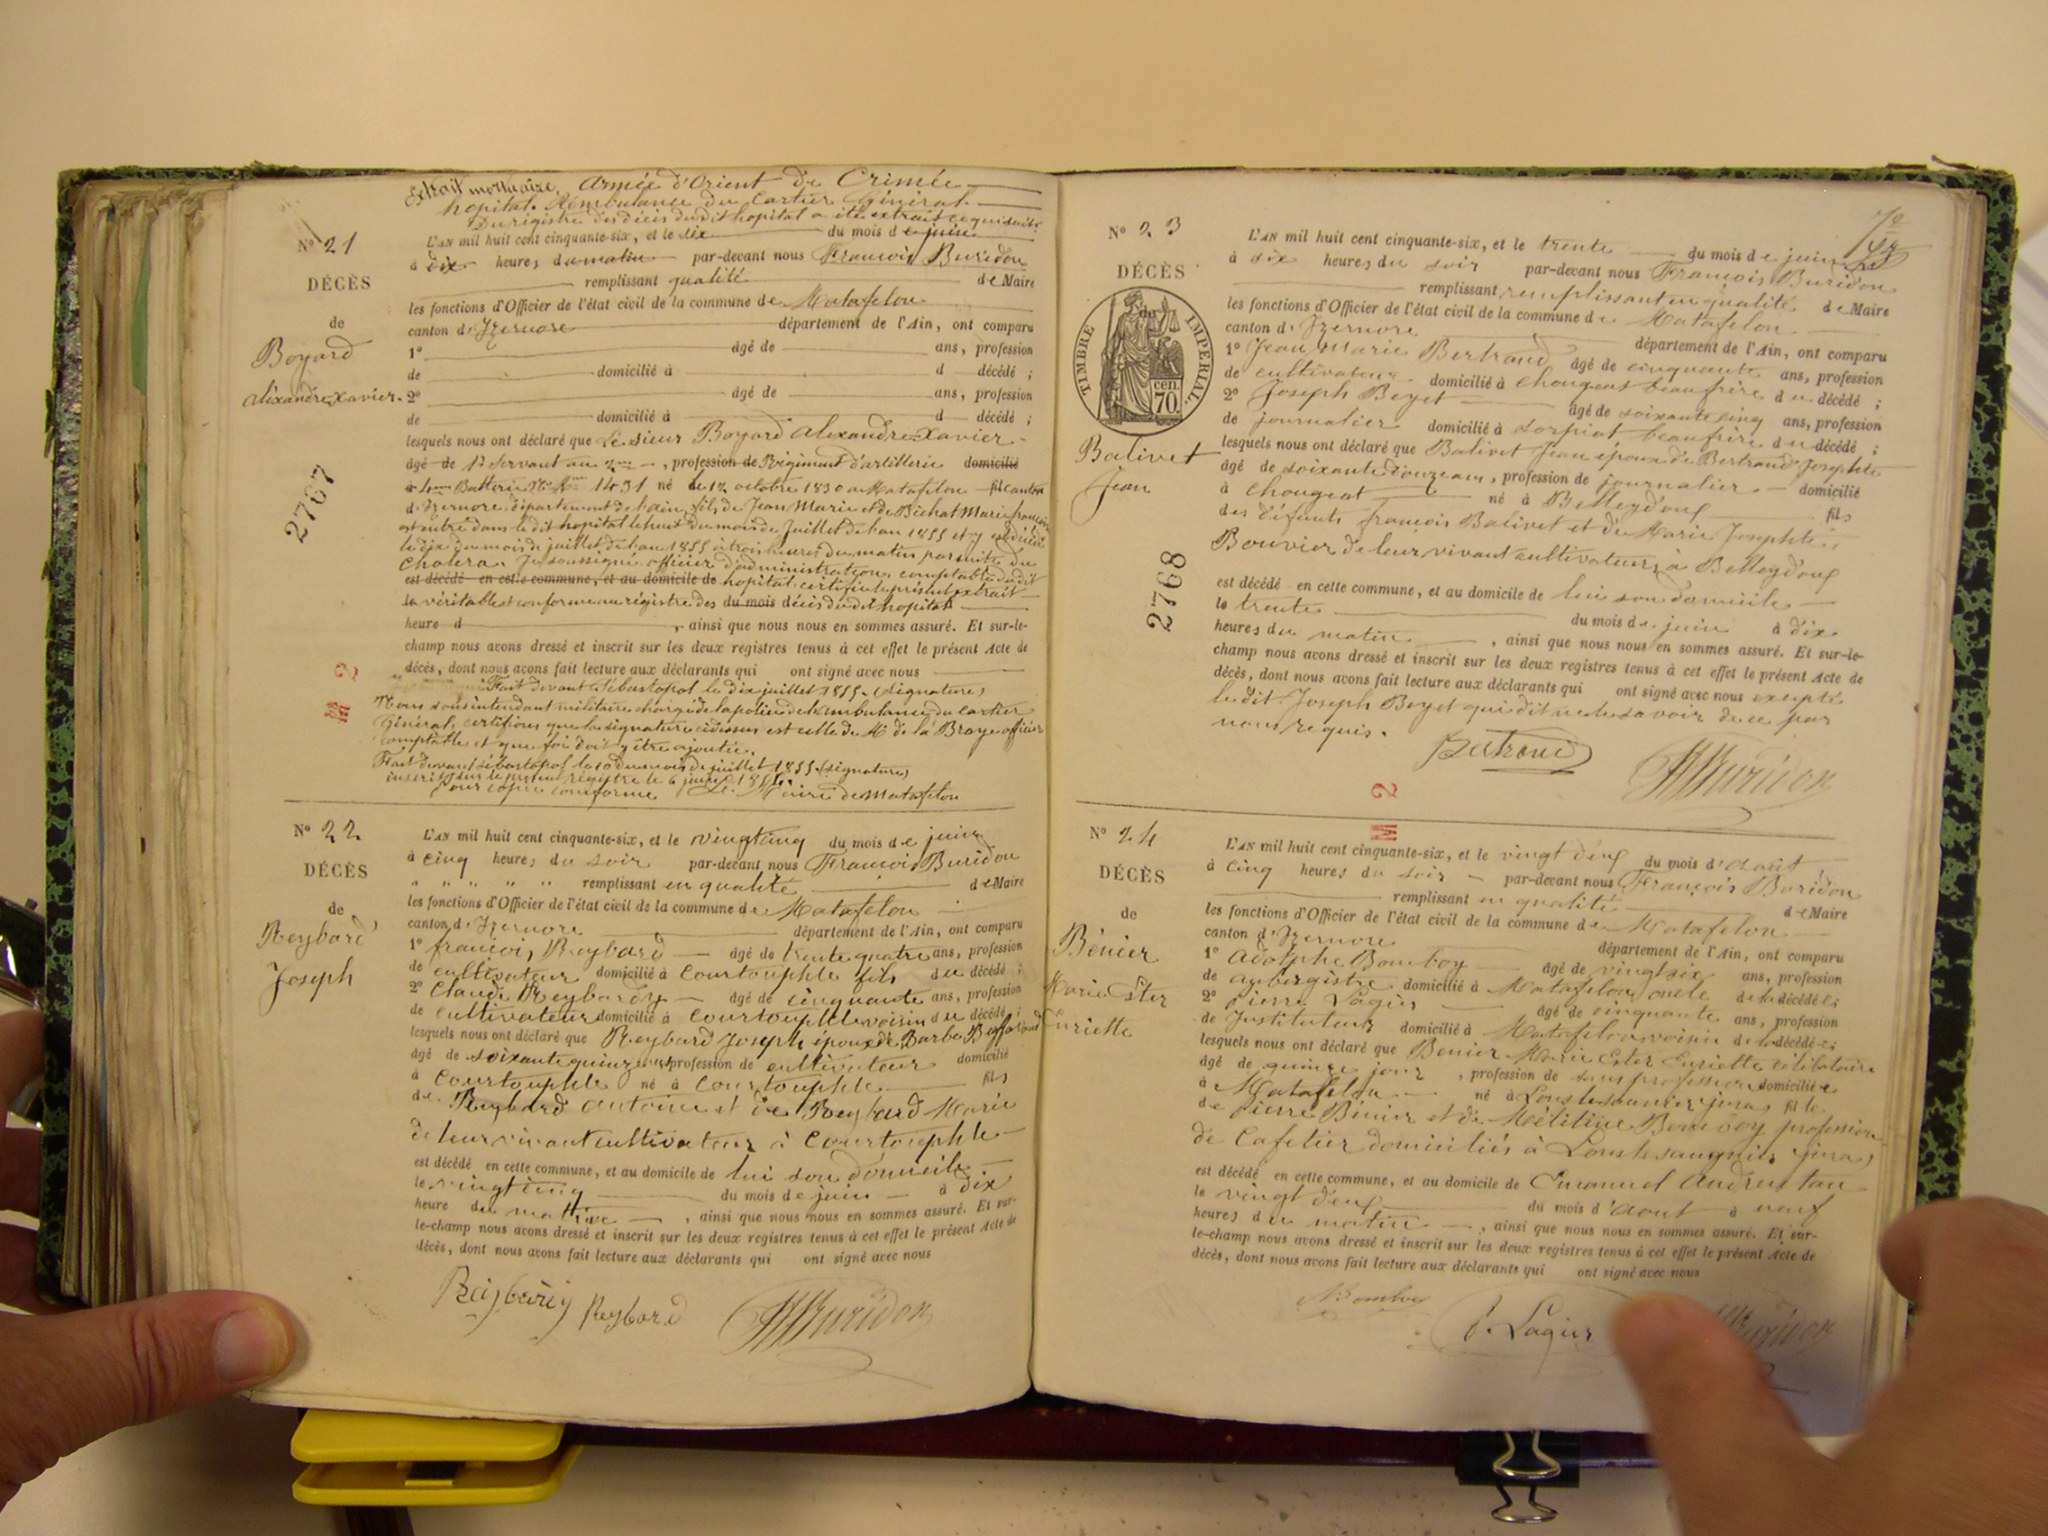 Extrait mortuaire. Armée d'Orient de Crimée
hopital. Ambulance du Cartier Général
Du régistre des décès du dit hopital a été extrait ce qui suit:
N° 21
L'AN mil huit cent cinquante-six, et le six du mois de juin
à dix heures du matin par-devant nous François Buridon
DÉCÈS
remplissant qualité de Maire
les fonctions d'Officier de l'état civil de la commune de Matafelon
de
canton d'Izernore département de l'Ain, ont comparu
Boyard
1° âgé de ans, profession
de domicilié à d décédé ;
Alexandre Xavier.
2° âgé de ans, profession
de domicilié à d décédé ;
lesquels nous ont déclaré que Le sieur Boyard Alexandre Xavier
âgé de 1er Servant au 2me, profession de Régiment d'artillerie domicilié
à Batterie 1431 né le 12 octobre 1830 à Matafelon canton
d'Izernore département de l'ain, fils de Jean Marie et de Bichat Marie françoise
est entré dans le dit hopital le huit du mois de Juillet de l'an 1855 et y est décédé
le dix du mois de juillet de l'an 1855 à trois heures du matin par suite du
Cholera. Je soussigné officier d'administration comptable du dit
est décédé en cette commune, et au domicile de hopital certifie le présent extrait
le véritable et conforme au régistre des du mois décès du dit hopital
2767
heure d , ainsi que nous nous en sommes assuré. Et sur-le-
champ nous avons dressé et inscrit sur les deux registres tenus à cet effet le présent Acte de
décès, dont nous avons fait lecture aux déclarants qui ont signé avec nous
M 2
Fait devant Sébastopol le dix juillet 1855. (signature)
Nous sous intendant militaire chargé de la police de l'ambulance du cartier
Général, certifions que la signature cidessus est celle de M. de la Braye officier
comptable et que foi doit y être ajoutée.
Fait devant Sébastopol le 10 du mois de juillet 1855 (signature)
inscrit sur le présent régistre le 6 juin 1856.
Pour copie conforme Le Maire de Matafelon
N° 22
L'AN mil huit cent cinquante-six, et le vingt cinq du mois de juin
à cinq heures du soir par-devant nous François Buridon
DÉCÈS
remplissant en qualité de Maire
les fonctions d'Officier de l'état civil de la commune de Matafelon
de
canton d'Izernore département de l'Ain, ont comparu
Reybard
1° françois Reybard âgé de trente quatre ans, profession
de cultivateur domicilié à Courtouphle fils du décédé ;
Joseph
2° Claude Reybard âgé de cinquante ans, profession
de cultivateur domicilié à Courtouphle voisin du décédé ;
lesquels nous ont déclaré que Reybard Joseph époux de Barbe
âgé de soixante quinze ans, profession de cultivateur domicilié
à Courtouphle né à Courtouphle fils
de Reybard Antoine et de Reybard Marie
de leur vivant cultivateur à Courtouphle
est décédé en cette commune, et au domicile de lui son domicile
le vingt cinq du mois de juin à dix
heure du matin , ainsi que nous nous en sommes assuré. Et sur-
le-champ nous avons dressé et inscrit sur les deux registres tenus à cet effet le présent Acte de
décès, dont nous avons fait lecture aux déclarants qui ont signé avec nous
Reybard Buridon
N° 23
L'AN mil huit cent cinquante-six, et le trente du mois de juin
à six heures du soir par-devant nous François Buridon
DÉCÈS
remplissant remplissant en qualité de Maire
les fonctions d'Officier de l'état civil de la commune de Matafelon
de
TIMBRE IMPÉRIAL.
cen. 70.
canton d'Izernore département de l'Ain, ont comparu
1° Jean Marie Bertrand âgé de cinquante ans, profession
de cultivateur domicilié à Chougeat beaufrère du décédé ;
2° Joseph Beyet âgé de soixante cinq ans, profession
de journalier domicilié à Sorpiat beaufrère du décédé ;
Balivet
Jean
lesquels nous ont déclaré que Balivet Jean époux de Bertrand Josephte
âgé de soixante douze ans, profession de journalier domicilié
à Chougeat né à Belleydoux fils
des défunts françois Balivet et de Marie Josephte
Bouvier de leur vivant cultivateurs à Belleydoux
2768
est décédé en cette commune, et au domicile de lui son domicile
le trente du mois de juin à dix
heures du matin , ainsi que nous nous en sommes assuré. Et sur-le-
champ nous avons dressé et inscrit sur les deux registres tenus à cet effet le présent Acte de
décès, dont nous avons fait lecture aux déclarants qui ont signé avec nous excepté
le dit Joseph Beyet qui dit ne le savoir de ce par
nous requis.
Buridon
M 2
N° 24
L'AN mil huit cent cinquante-six, et le vingt deux du mois d'Août
à cinq heures du soir par-devant nous François Buridon
DÉCÈS
remplissant en qualité de Maire
les fonctions d'Officier de l'état civil de la commune de Matafelon
de
canton d'Izernore département de l'Ain, ont comparu
Bénier
1° Adolphe Bomboy âgé de vingt six ans, profession
de aubergiste domicilié à Matafelon oncle de la décédée ;
Marie Ester
2° Pierre Lagier âgé de cinquante ans, profession
de Instituteur domicilié à Matafelon voisin de la décédée ;
Euriette
lesquels nous ont déclaré que Benier Marie Ester Euriette célibataire
âgé de quinze jour , profession de sans profession domiciliée
à Matafelon né à Lons le saunier jura fille
de Pierre Bénier et de Bomboy profession
de Cafetier domiciliés à Lons le saugnier jura,
est décédé en cette commune, et au domicile de Emanuel
le vingt deux du mois d'Aout à neuf
heures du matin , ainsi que nous nous en sommes assuré. Et sur-
le-champ nous avons dressé et inscrit sur les deux registres tenus à cet effet le présent Acte de
décès, dont nous avons fait lecture aux déclarants qui ont signé avec nous
Lagier Buridon